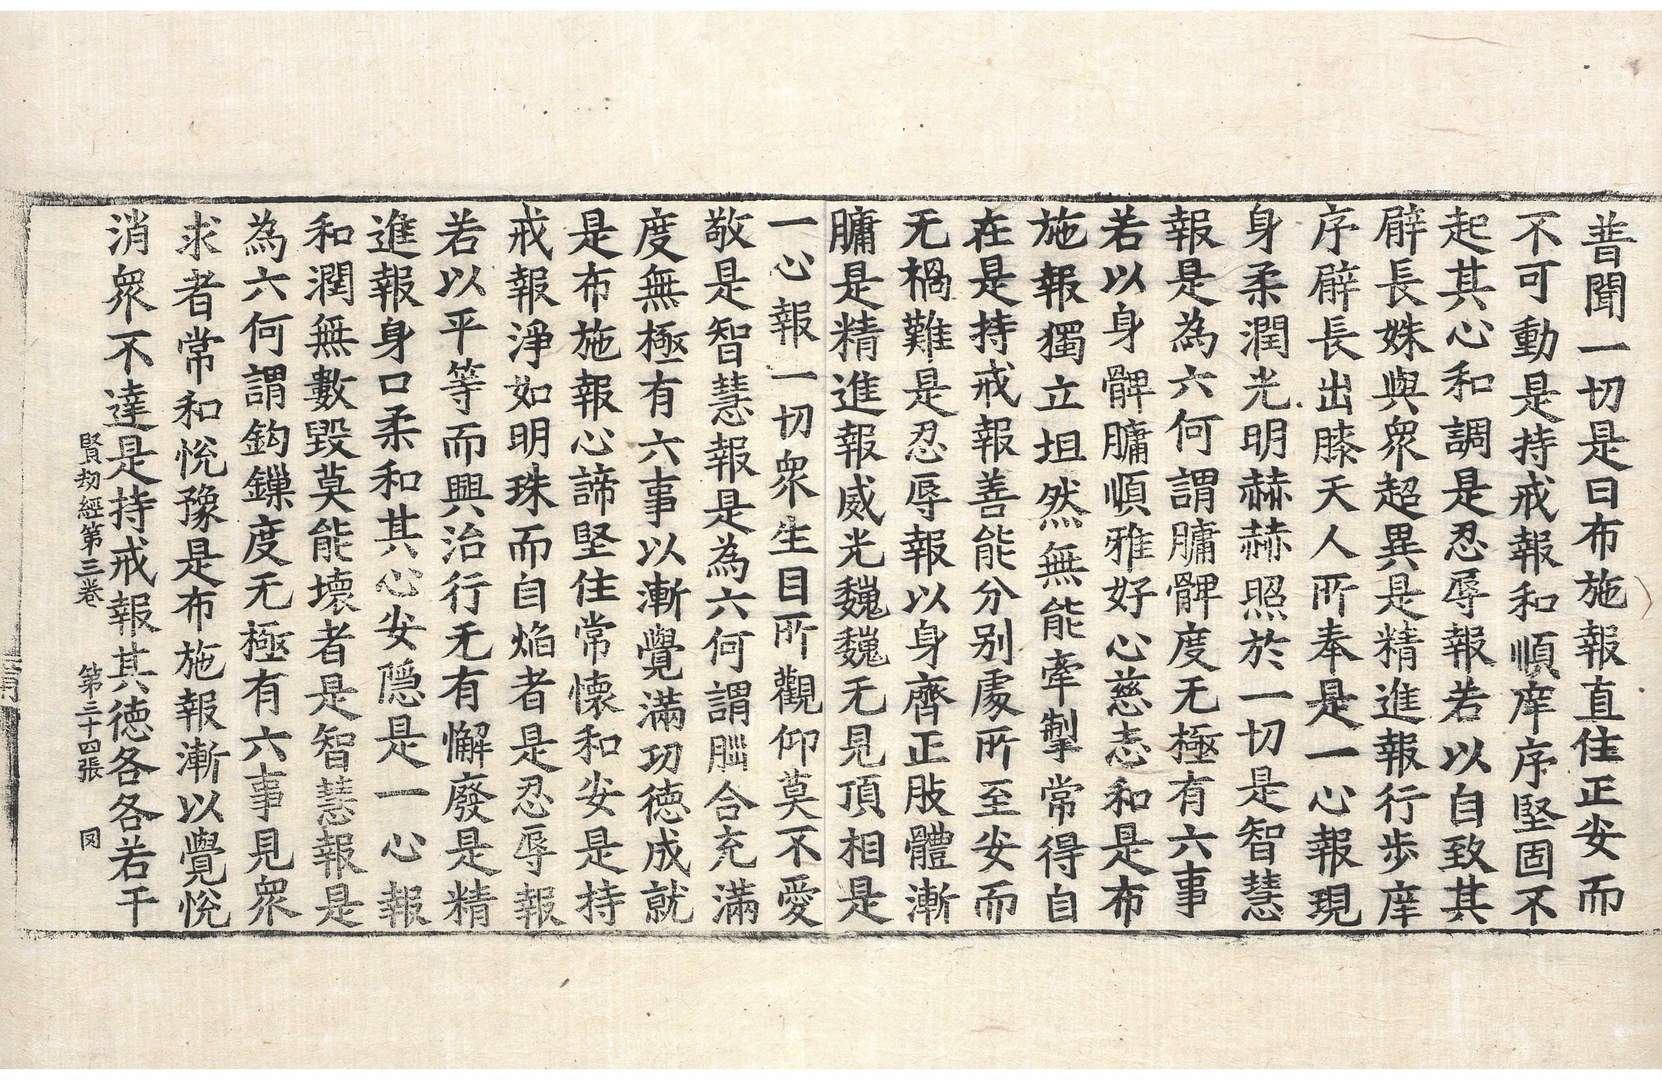 普聞一切是曰布施報直住正安而
不可動是持戒報和順庠序堅固不
起其心和調是忍辱報若以自致其
臂長姝與衆超異是精進報行步庠
序臂長出膝天人所奉是一心報現
身柔潤光明赫赫照於一切是智慧
報是為六何謂𦟛髀度无極有六事
若以身髀𦟛順雅好心慈志和是布
施報獨立坦然無能牽掣常得自
在是持戒報善能分別處所至安而
无禍難是忍辱報以身齊正肢體漸
𦟛是精進報威光巍巍无見頂相是
一心報一切衆生目所觀仰莫不愛
敬是智慧報是為六何謂𦠄合充滿
度無極有六事以漸覺滿功德成就
是布施報心諦堅住常懷和安是持
戒報淨如明珠而自焰者是忍辱報
若以平等而興治行无有懈廢是精
進報身口柔和其心安隱是一心報
和潤無數毀莫能壞者是智慧報是
為六何謂鈎鏁度无極有六事見衆
求者常和悅豫是布施報漸以覺悅
消衆不達是持戒報其德各各若干
賢劫經第三卷 第二十四張 同